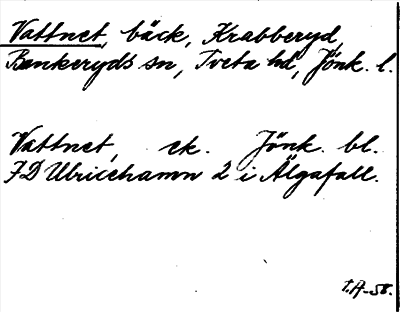 Vattnet, bäck, Krabberyd,
Bankeryds sn, Tveta hd, Jönk. l.
Vattnet, ek. Jönk. bl.
7D Ulricehamn 2 i Älgafall.
t.A-58.